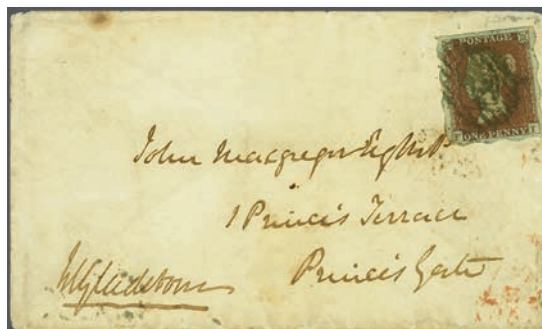 POSTAGE
ONE PENNY
John Macgregor Esq M.P.
1 Princes Terrace
Princes Gate
WEGladstone